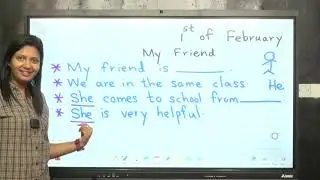 1st of February
My Friend
* My friend is ________.
* We are in the same class. He
* She comes to school from______
* She is very helpful.